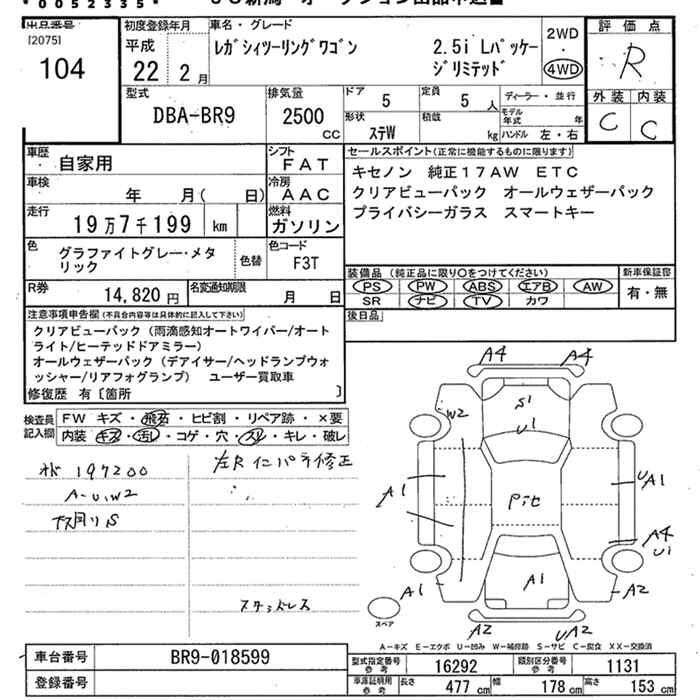 *0052335*
出品番号
[2075]
104
初度登録年月
平成
22 2月
車名・グレード
レガシィツーリングワゴン 2.5i Lパッケー
ジリミテッド
2WD
・
4WD
評価点
R
外装 内装
C C
型式
DBA-BR9
排気量
2500
CC
ドア 5
定員 5人
ディーラー・並行
形状 ステW
積載 kg
モデル年式 年
ハンドル 左・右
車歴 自家用
シフト FAT
車検 年 月( 日)
冷房 AAC
走行 19万7千199 km
燃料 ガソリン
色 グラファイトグレー・メタ
リック
色替
色コード
F3T
R券 14,820円
名変通知期限 月 日
セールスポイント(正常に機能するものに限ります)
キセノン 純正17AW ETC
クリアビューパック オールウェザーパック
プライバシーガラス スマートキー
装備品(純正品に限り〇をつけてください)
PS PW ABS エアB AW
SR ナビ TV カワ
新車保証書
有・無
後日品
注意事項申告欄(不具合内容等は具体的に記入して下さい)
クリアビューパック(雨滴感知オートワイパー/オート
ライト/ヒーテッドドアミラー)
オールウェザーパック(デアイサー/ヘッドランプウォ
ッシャー/リアフォグランプ) ユーザー買取車
修復歴 有〔箇所 〕
検査員
記入欄
FW キズ・飛石・ヒビ割・リペア跡・×要
内装 キズ・汚レ・コゲ・穴・スレ・キレ・破レ
197200
A-U,W2
左Rインパネ修正
スタッドレス
A4 A4
S1
U1
W2
A1
UA1
Pit
A4
U1
A1
A1
A2
A2
UA2
スペア
A-キズ E-エクボ U-凹み W-補修跡 S-サビ C-腐食 XX-交換済
車台番号 BR9-018599
登録番号
型式指定番号
参考
16292
類別区分番号
参考
1131
車庫証明用
参考
長さ 477cm
幅 178cm
高さ 153cm